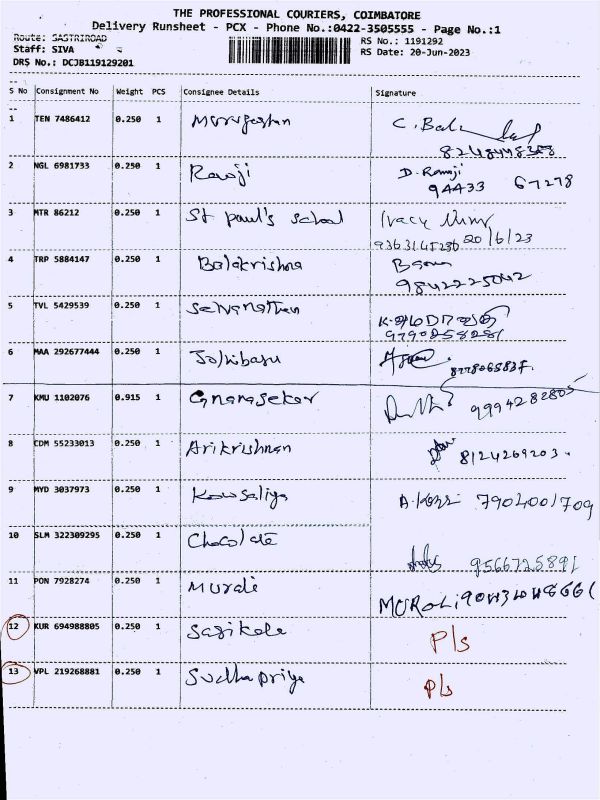 THE PROFESSIONAL COURIERS, COIMBATORE
Delivery Runsheet - PCX - Phone No.:0422-3505555 - Page No.:1
Route: SASTRIROAD
RS No.: 1191292
Staff: SIVA
RS Date: 20-Jun-2023
DRS No.: DCJB119129201
S No Consignment No Weight PCS Consignee Details Signature
1 TEN 7486412 0.250 1 Murugeshan C. Bal
2 NGL 6981733 0.250 1 Ramji D. Ramji
94433 67278
3 MTR 86212 0.250 1 St paul's school
9363145236 20/6/23
4 TRP 5884147 0.250 1 Balakrishna
9842225042
5 TVL 5429539 0.250 1 Selvanathan
9790858281
6 MAA 292677444 0.250 1
8778065837.
7 KMU 1102076 0.915 1 Gnanasekar 9994282805
8 CDM 55233013 0.250 1 Arikrishnan 8124269203.
9 MYD 3037973 0.250 1 Kowsaliya 7904001709
10 SLM 322309295 0.250 1 Chocolate
9566725891
11 PON 7928274 0.250 1 Murali
MUROLi
12 KUR 694988805 0.250 1 Sasikala P/s
13 VPL 219268881 0.250 1 Sudhapriya P/s